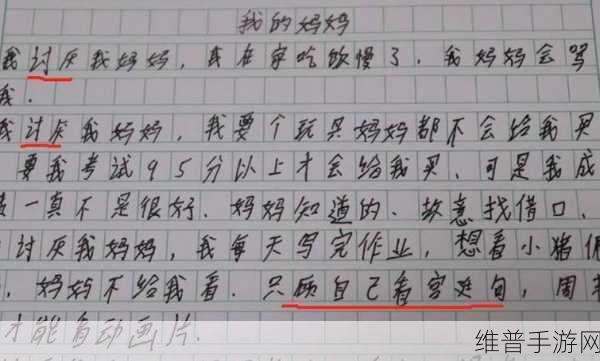 我的妈妈
我讨灰我妈妈，我在家吃饮慢了．我妈妈会骂
我．
我讨灰我妈妈，我要个玩具妈妈都不会给我买
要我考试95分以上才会给我买．可是我成
一真不是很好．妈妈知道的．故意找借口．
讨灰我妈妈，我每天写完作业，想看小猪佩
，妈妈不给我看．只顾自己看宫，周末
才能看动画片．
维普手游网